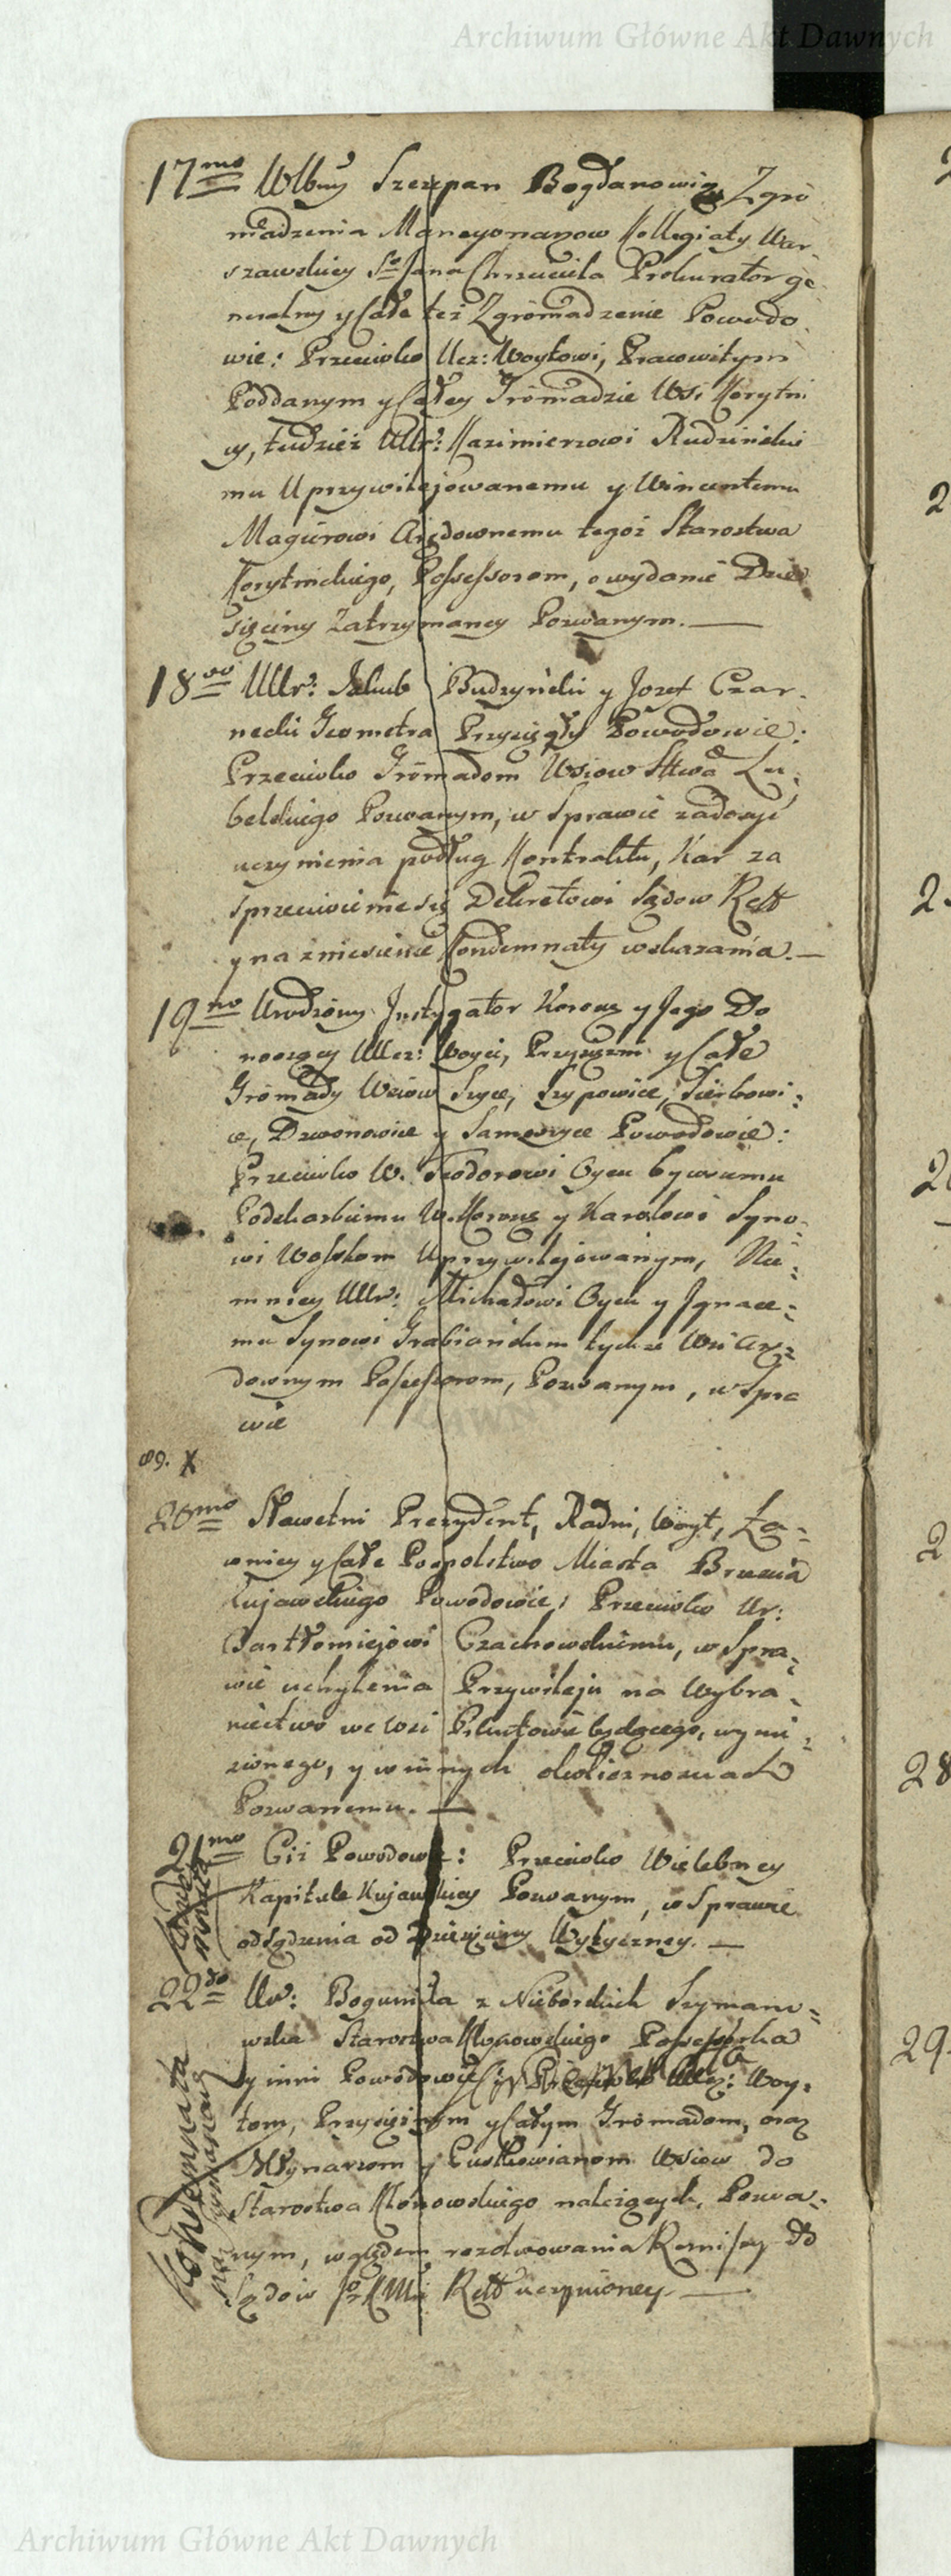 Archiwum Główne Akt Dawnych
17mo Wlbny Szczepan Bogdanowicz Zgro
madzenia Mansyonarzow Kollegiaty War
szawskiey Sgo Jana Chrzciciela Prokurator ge
neralny y Całe też Zgromadzenie Powodo
wie: Przeciwko Ucz: Woytowi, Pracowitym
Poddanym y Całey Gromadzie Wsi Korytni
cy, tudzież UUr: Kazimierzowi Rudzinskie
mu Uprzywilejowanemu y Wincentemu
Magierowi Arędownemu tegoż Starostwa
Korytnickiego, Possessorom, o wydanie Dzie
sięciny Zatrzymaney Pozwanym.—
18vo UUr: Jakub Budzyński y Jozef Czar-
necki Geometra Przysięgły Powodowie:
Przeciwko Gromadom Wsiow Sttwa Lu-
belskiego Pozwanym, w Sprawie zadosyć
uczynienia podług Kontraktu, Kar za
sprzeciwienie się Dekretowi Sądow Reff
y na zniesienie Kondemnaty wskazania.—
19no Urodzony Instygator Koronny y Jego Do
noszący UUcz: Woyci, Przysiężni y Całe
Gromady Wsiow Szyce, Szypowice, Sierbowi-
ce, Dzwonowice y Samoszyce Powodowie:
Przeciwko W. Teodorowi Oycu bywszemu
Podskarbiemu W. Koronn y Karolowi Syno-
wi Wesslom Uprzywilejowanym, Nie-
mniey UUr: Michałowi Oycu y Ignace-
mu Synowi Grabiańskim tychże Wsi Arę-
downym Possessorom, Pozwanym, w Spra
wie
89. X
20mo Sławetni Prezydent, Radni, Woyt, Ła-
wnicy y Całe Pospolstwo Miasta Brzescia
Kujawskiego Powodowie; Przeciwko Ur:
Bartłomiejowi Czachowskiemu, w Spra-
wie uchylenia Przywileju na Wybra-
niectwo we Wsi Pikutowie będącego, wynie-
sionego, y w innych okolicznosciach
Pozwanemu.—
21mo Ciż Powodowie: Przeciwko Wielebney
Kapitule Kujawskiey Pozwanym, w Sprawie
odsądzenia od Dziesięciny Wytyczney.—
22do Ur: Bogumiła z Nieborskich Szymano-
wska Starostwa Klonowskiego Possessorka
y inni Powodowie Przeciwko UUcz: Woy-
tom, Przysiężnym y Całym Gromadom, oraz
Młynarzom y Pustkowianom Wsiow do
Starostwa Klonowskiego należących, Pozwa-
nym, względem rezolwowania Remissy do
Sądow JKMci Reff uczynioney.—
Kondemnata
Archiwum Główne Akt Dawnych